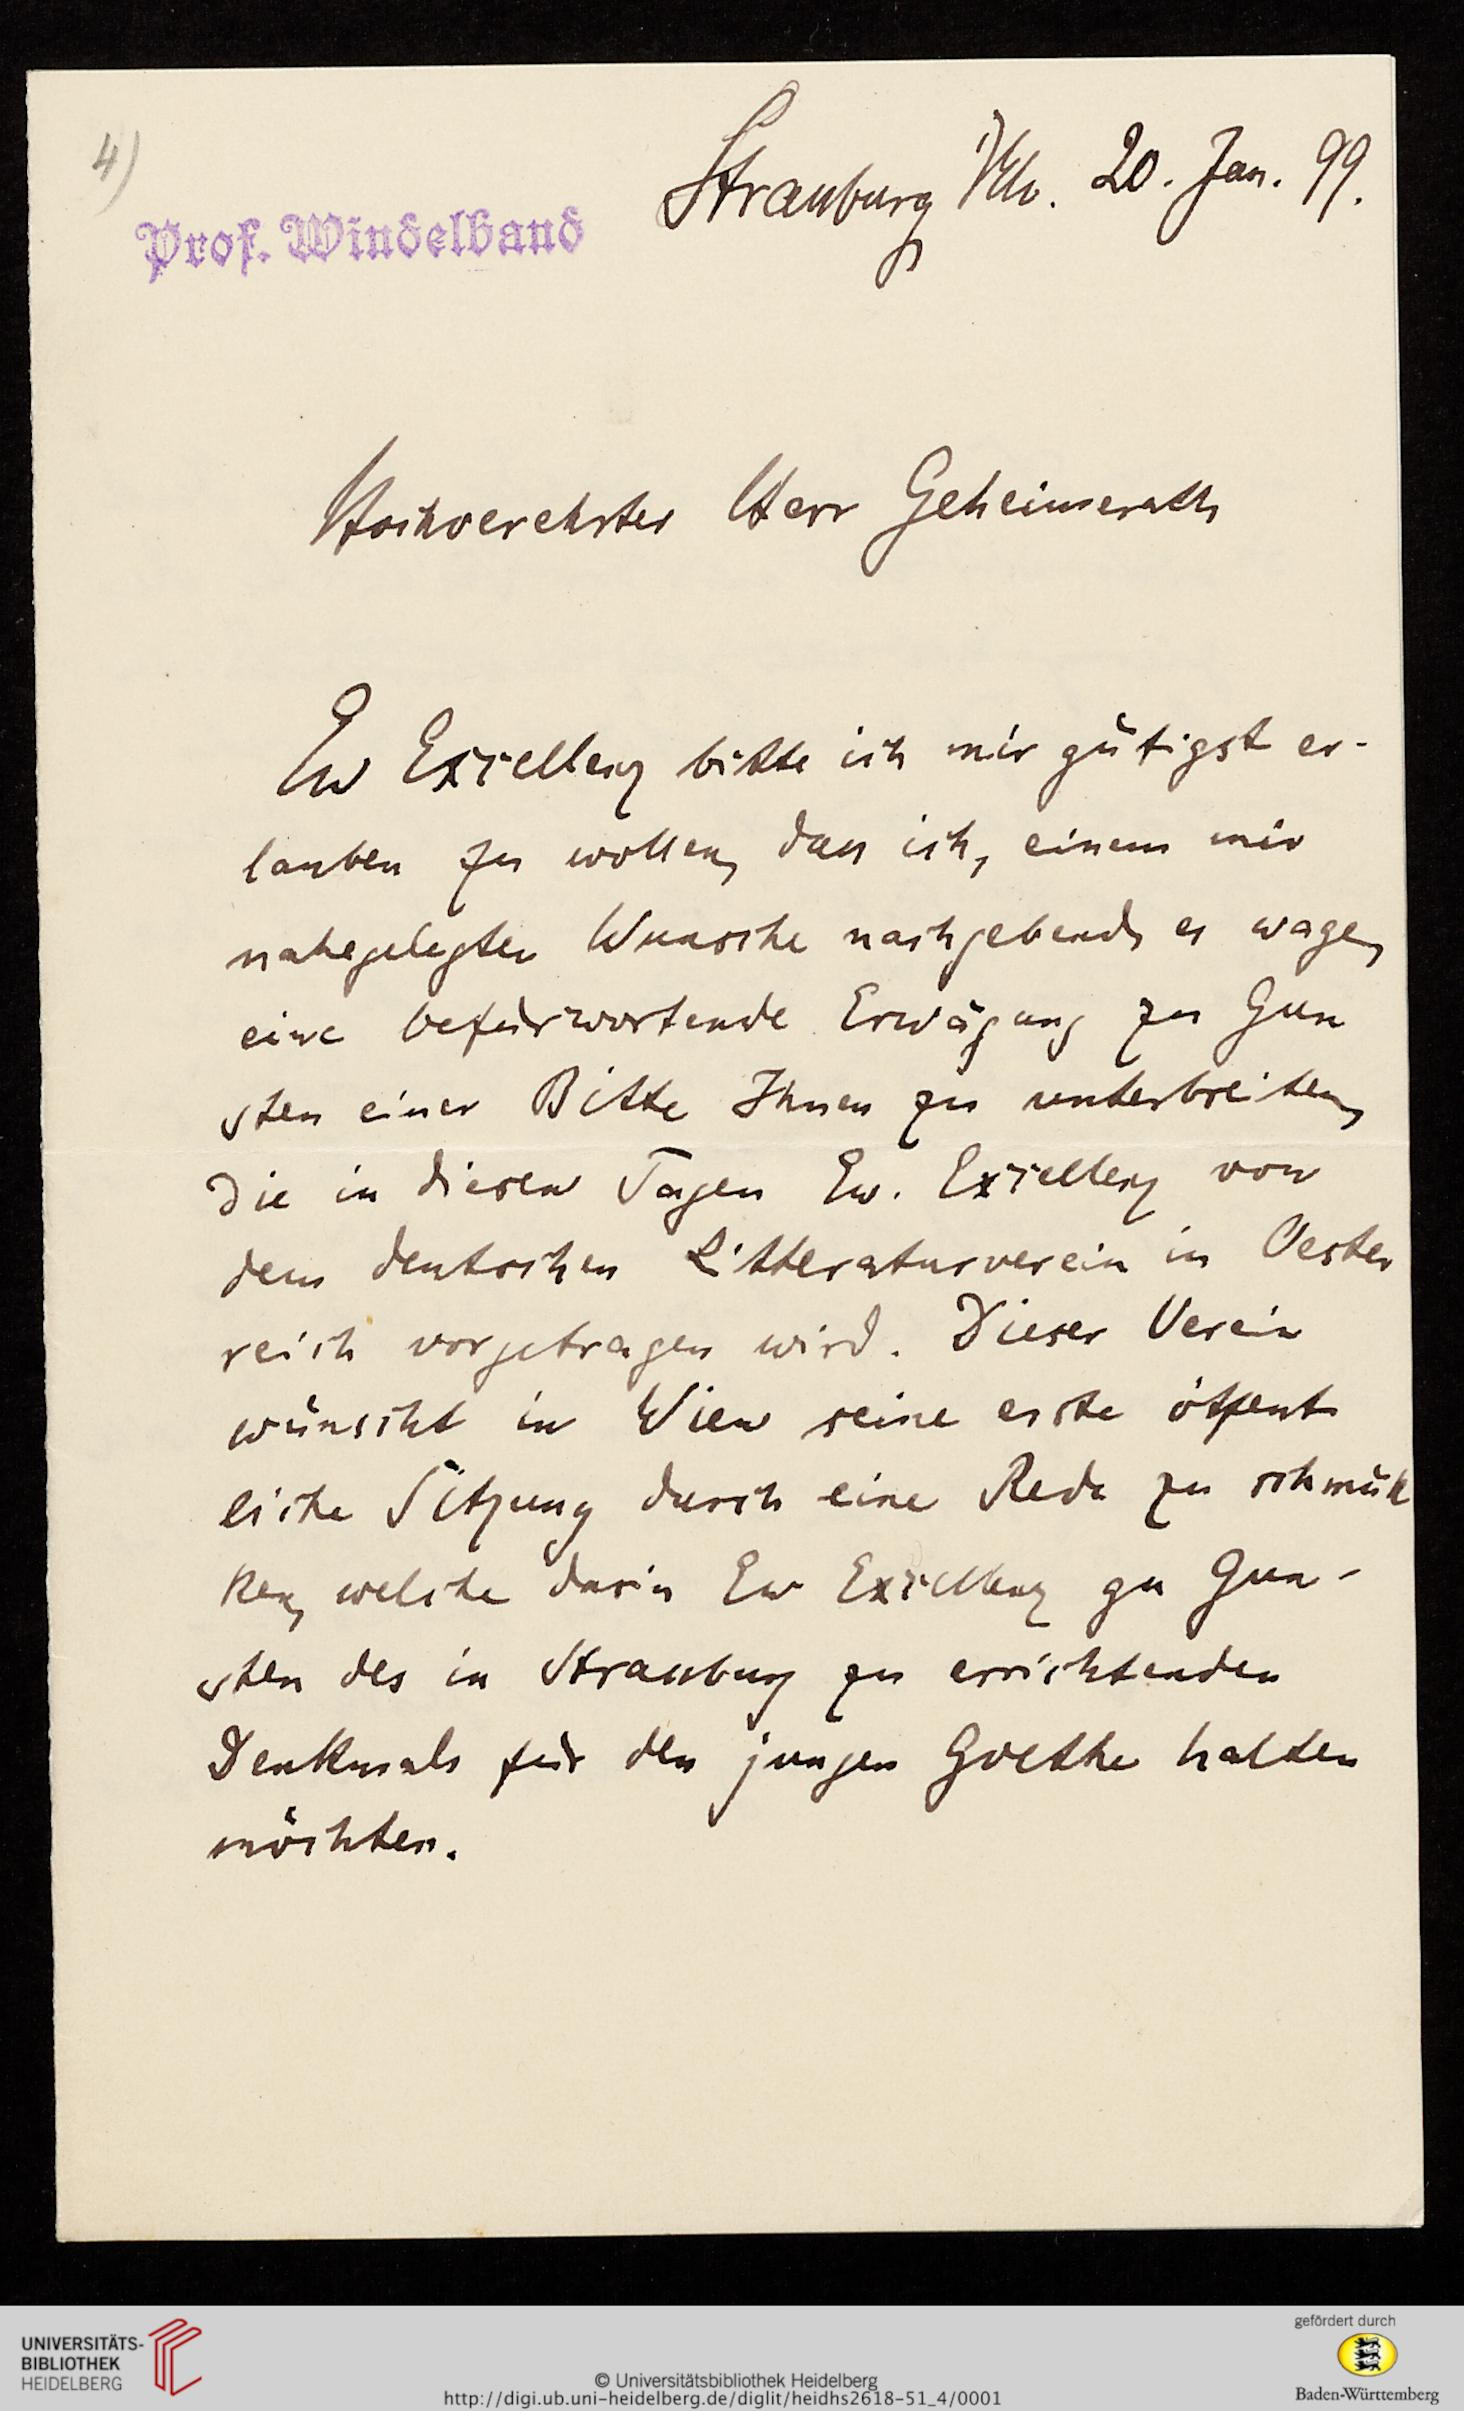 4)
Straßburg i/Els. 20. Jan. 99.
Prof. Windelband
Hochverehrter Herr Geheimerath
Ew Excellenz bitte ich mir gütigst er-
lauben zu wollen, dass ich, einem mir
nahegelegten Wunsche nachgebend, es wage,
eine befürwortende Erwägung zu Gun
sten einer Bitte Ihnen zu unterbreiten,
die in diesen Tagen Ew. Excellenz von
dem deutschen Litteraturverein in Oester
reich vorgetragen wird. Dieser Verein
wünscht in Wien seine erste öffent
liche Sitzung durch eine Rede zu schmük
ken, welche darin Ew Excellenz zu Gun-
sten des in Straßburg zu errichtenden
Denkmals für den jungen Goethe halten
möchten.
UNIVERSITÄTS-
BIBLIOTHEK
HEIDELBERG
© Universitätsbibliothek Heidelberg
http://digi.ub.uni-heidelberg.de/diglit/heidhs2618-51_4/0001
gefördert durch
Baden-Württemberg